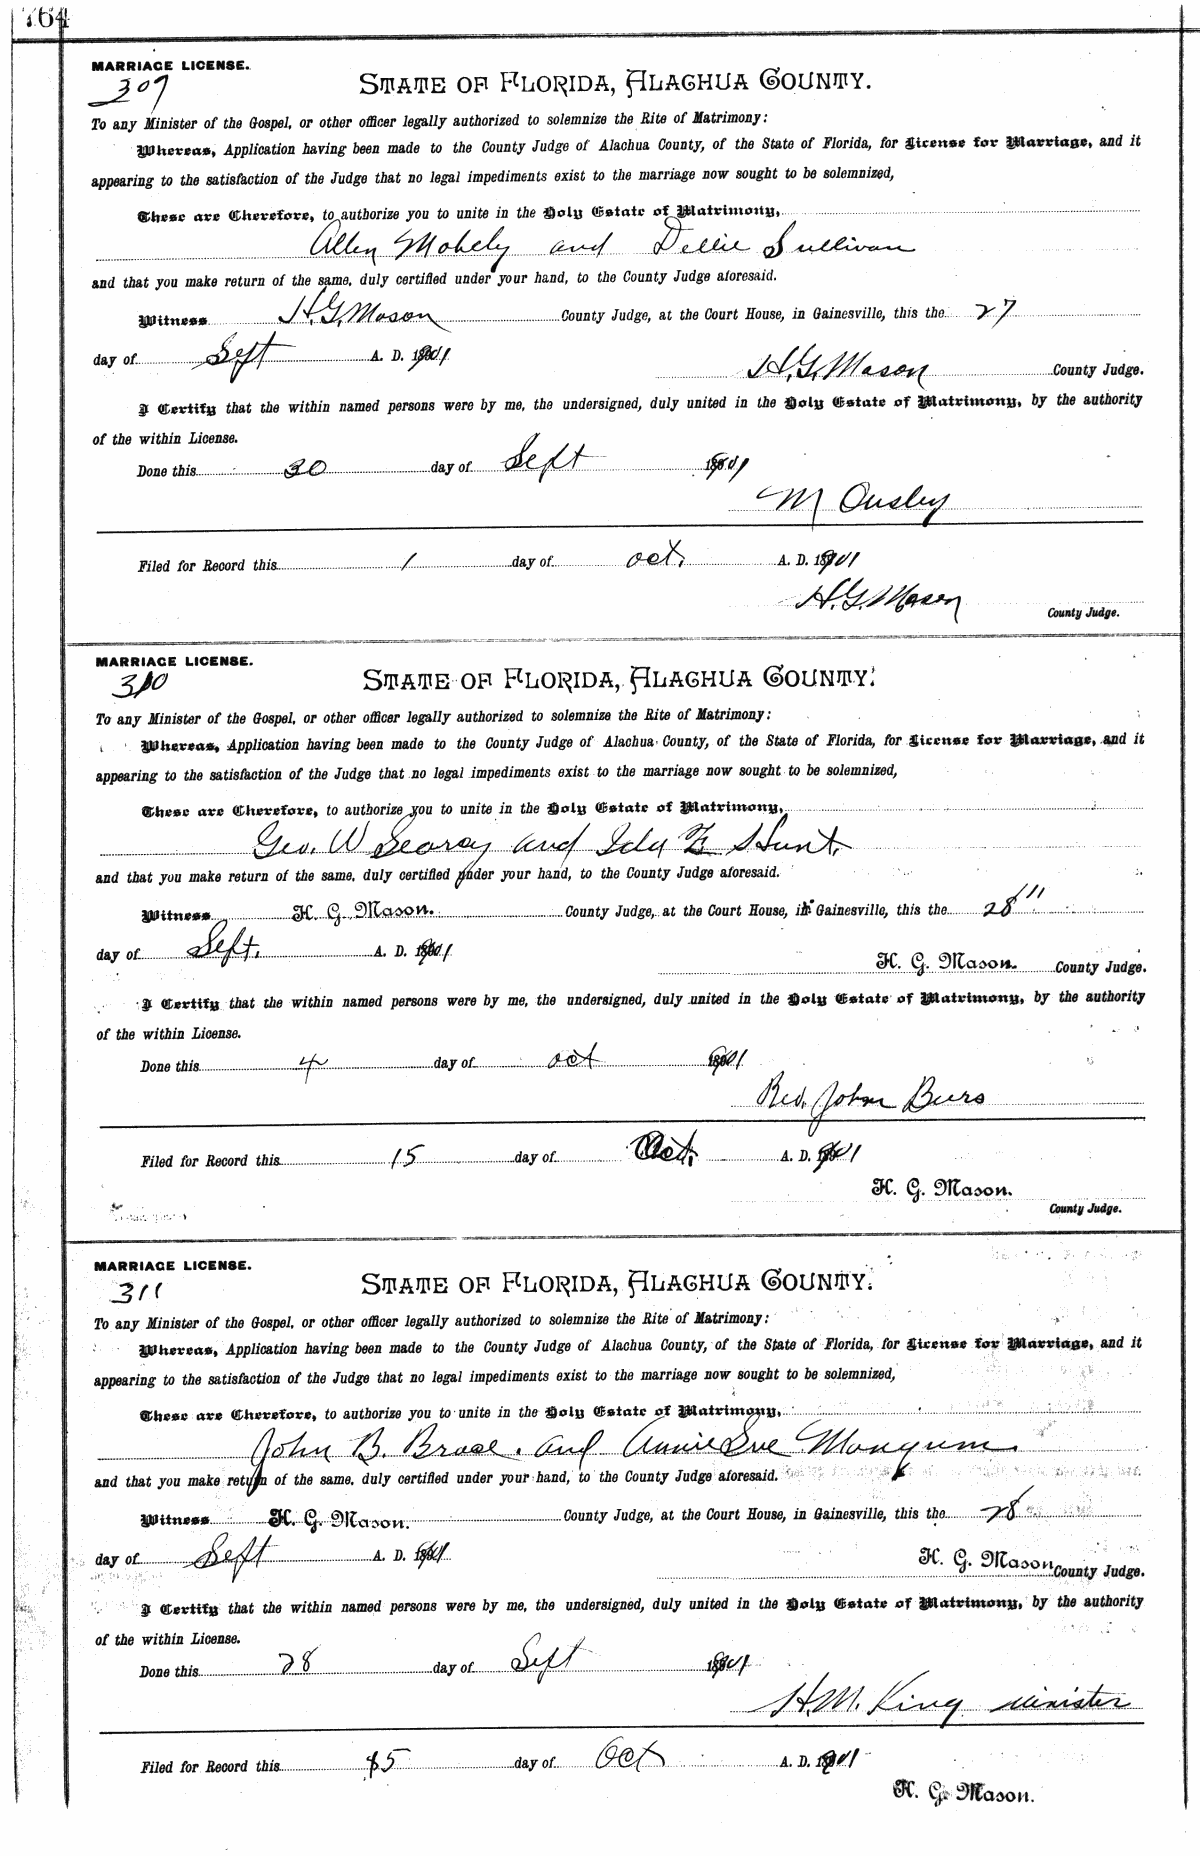 164
MARRIAGE LICENSE.
309
STATE OF FLORIDA, ALACHUA COUNTY.
To any Minister of the Gospel, or other officer legally authorized to solemnize the Rite of Matrimony:
Whereas, Application having been made to the County Judge of Alachua County, of the State of Florida, for License for Marriage, and it
appearing to the satisfaction of the Judge that no legal impediments exist to the marriage now sought to be solemnized,
These are Therefore, to authorize you to unite in the Holy Estate of Matrimony,
Allen Mobely and Dellie Sullivan
and that you make return of the same, duly certified under your hand, to the County Judge aforesaid.
Witness H. G. Mason County Judge, at the Court House, in Gainesville, this the 27
day of Sept A. D. 1901
H. G. Mason County Judge.
I Certify that the within named persons were by me, the undersigned, duly united in the Holy Estate of Matrimony, by the authority
of the within License.
Done this 30 day of Sept 1901
M Ousley
Filed for Record this 1 day of oct. A. D. 1901
H. G. Mason
County Judge.
MARRIAGE LICENSE.
310
STATE OF FLORIDA, ALACHUA COUNTY.
To any Minister of the Gospel, or other officer legally authorized to solemnize the Rite of Matrimony:
Whereas, Application having been made to the County Judge of Alachua County, of the State of Florida, for License for Marriage, and it
appearing to the satisfaction of the Judge that no legal impediments exist to the marriage now sought to be solemnized,
These are Therefore, to authorize you to unite in the Holy Estate of Matrimony,
Geo. W Searcy and Ida E Hunt.
and that you make return of the same, duly certified under your hand, to the County Judge aforesaid.
Witness H. G. Mason. County Judge, at the Court House, in Gainesville, this the 28"
day of Sept. A. D. 1901
H. G. Mason. County Judge.
I Certify that the within named persons were by me, the undersigned, duly united in the Holy Estate of Matrimony, by the authority
of the within License.
Done this 4 day of oct 1901
Rev. John Beers
Filed for Record this 15 day of Oct. A. D. 1901
H. G. Mason.
County Judge.
MARRIAGE LICENSE.
311
STATE OF FLORIDA, ALACHUA COUNTY.
To any Minister of the Gospel, or other officer legally authorized to solemnize the Rite of Matrimony:
Whereas, Application having been made to the County Judge of Alachua County, of the State of Florida, for License for Marriage, and it
appearing to the satisfaction of the Judge that no legal impediments exist to the marriage now sought to be solemnized,
These are Therefore, to authorize you to unite in the Holy Estate of Matrimony,
John B. Brace. and Annie Sue Mangum.
and that you make return of the same, duly certified under your hand, to the County Judge aforesaid.
Witness H. G. Mason. County Judge, at the Court House, in Gainesville, this the 28
day of Sept A. D. 1901
H. G. Mason County Judge.
I Certify that the within named persons were by me, the undersigned, duly united in the Holy Estate of Matrimony, by the authority
of the within License.
Done this 28 day of Sept 1901
H. M. King minister
Filed for Record this 15 day of Oct A. D. 1901
H. G. Mason.